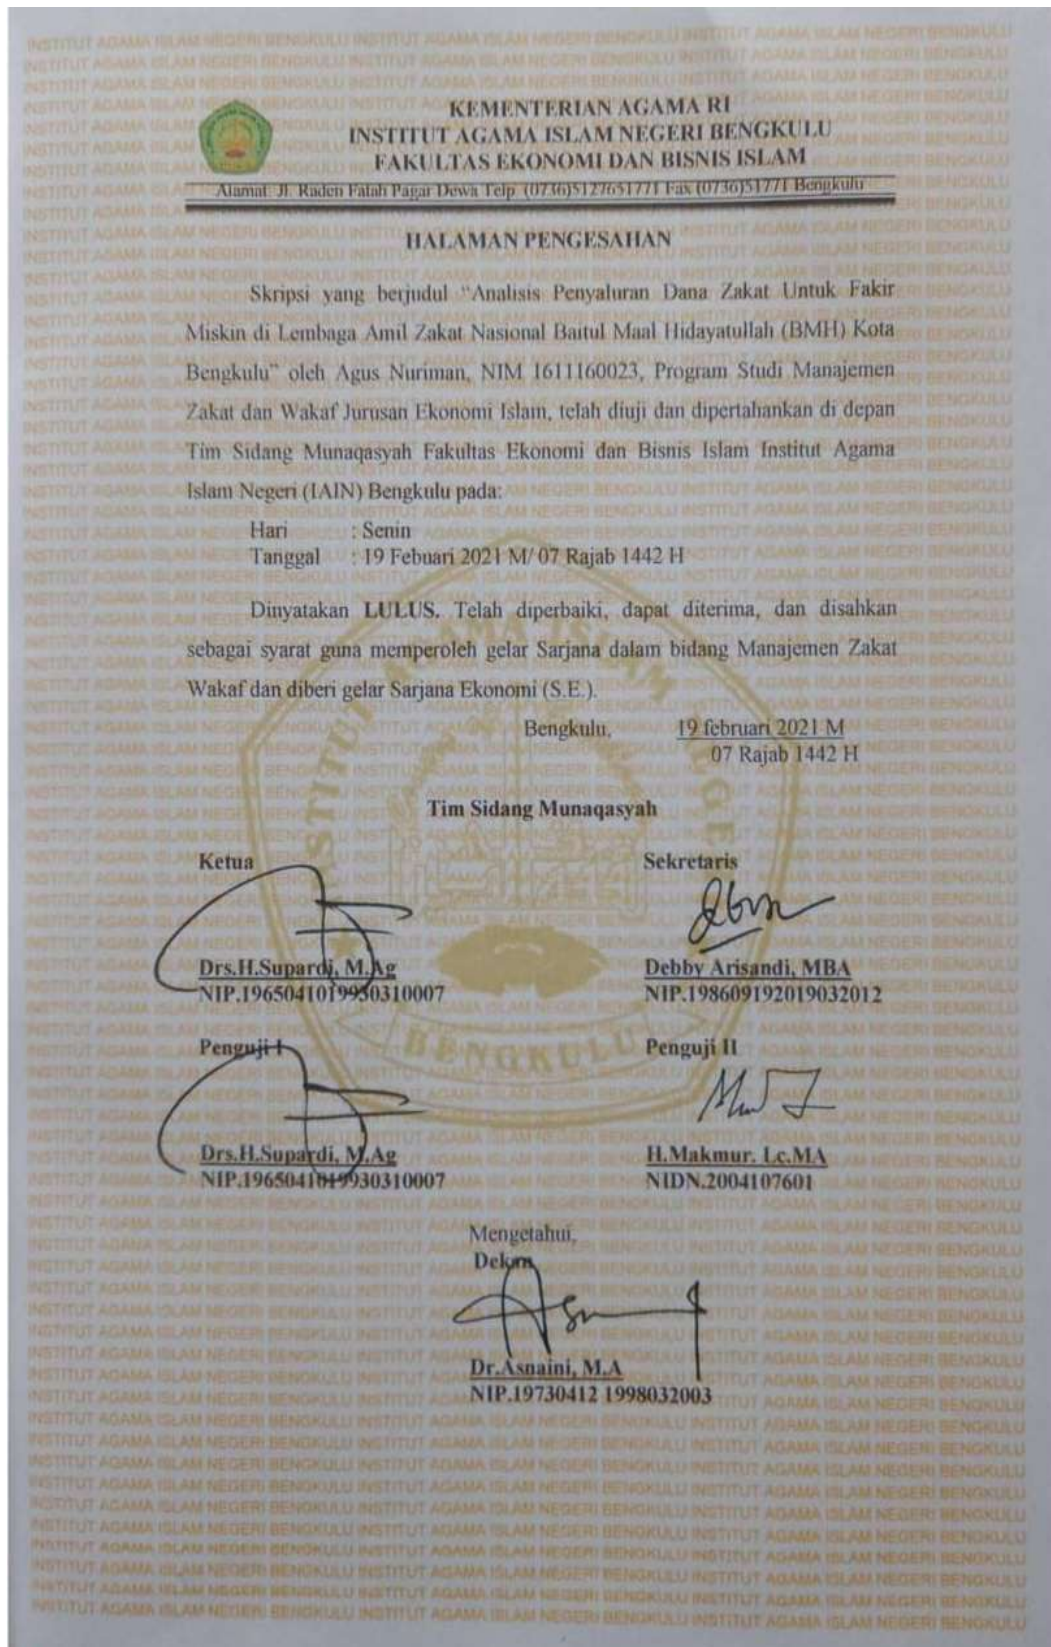 KEMENTERIAN AGAMA RI
INSTITUT AGAMA ISLAM NEGERI BENGKULU
FAKULTAS EKONOMI DAN BISNIS ISLAM
Alamat: Jl. Raden Fatah Pagar Dewa Telp. (0736)5127651771 Fax (0736)51771 Bengkulu
HALAMAN PENGESAHAN
Skripsi yang berjudul “Analisis Penyaluran Dana Zakat Untuk Fakir
Miskin di Lembaga Amil Zakat Nasional Baitul Maal Hidayatullah (BMH) Kota
Bengkulu” oleh Agus Nuriman, NIM 1611160023, Program Studi Manajemen
Zakat dan Wakaf Jurusan Ekonomi Islam, telah diuji dan dipertahankan di depan
Tim Sidang Munaqasyah Fakultas Ekonomi dan Bisnis Islam Institut Agama
Islam Negeri (IAIN) Bengkulu pada:
Hari : Senin
Tanggal : 19 Febuari 2021 M/ 07 Rajab 1442 H
Dinyatakan LULUS. Telah diperbaiki, dapat diterima, dan disahkan
sebagai syarat guna memperoleh gelar Sarjana dalam bidang Manajemen Zakat
Wakaf dan diberi gelar Sarjana Ekonomi (S.E.).
Bengkulu, 19 februari 2021 M
07 Rajab 1442 H
Tim Sidang Munaqasyah
Ketua Sekretaris
Drs.H.Supardi, M.Ag Debby Arisandi, MBA
NIP.196504101993031​0007 NIP.198609192019032012
Penguji I Penguji II
Drs.H.Supardi, M.Ag H.Makmur. Lc.MA
NIP.1965041019930310007 NIDN.2004107601
Mengetahui,
Dekan
Dr.Asnaini, M.A
NIP.19730412 1998032003